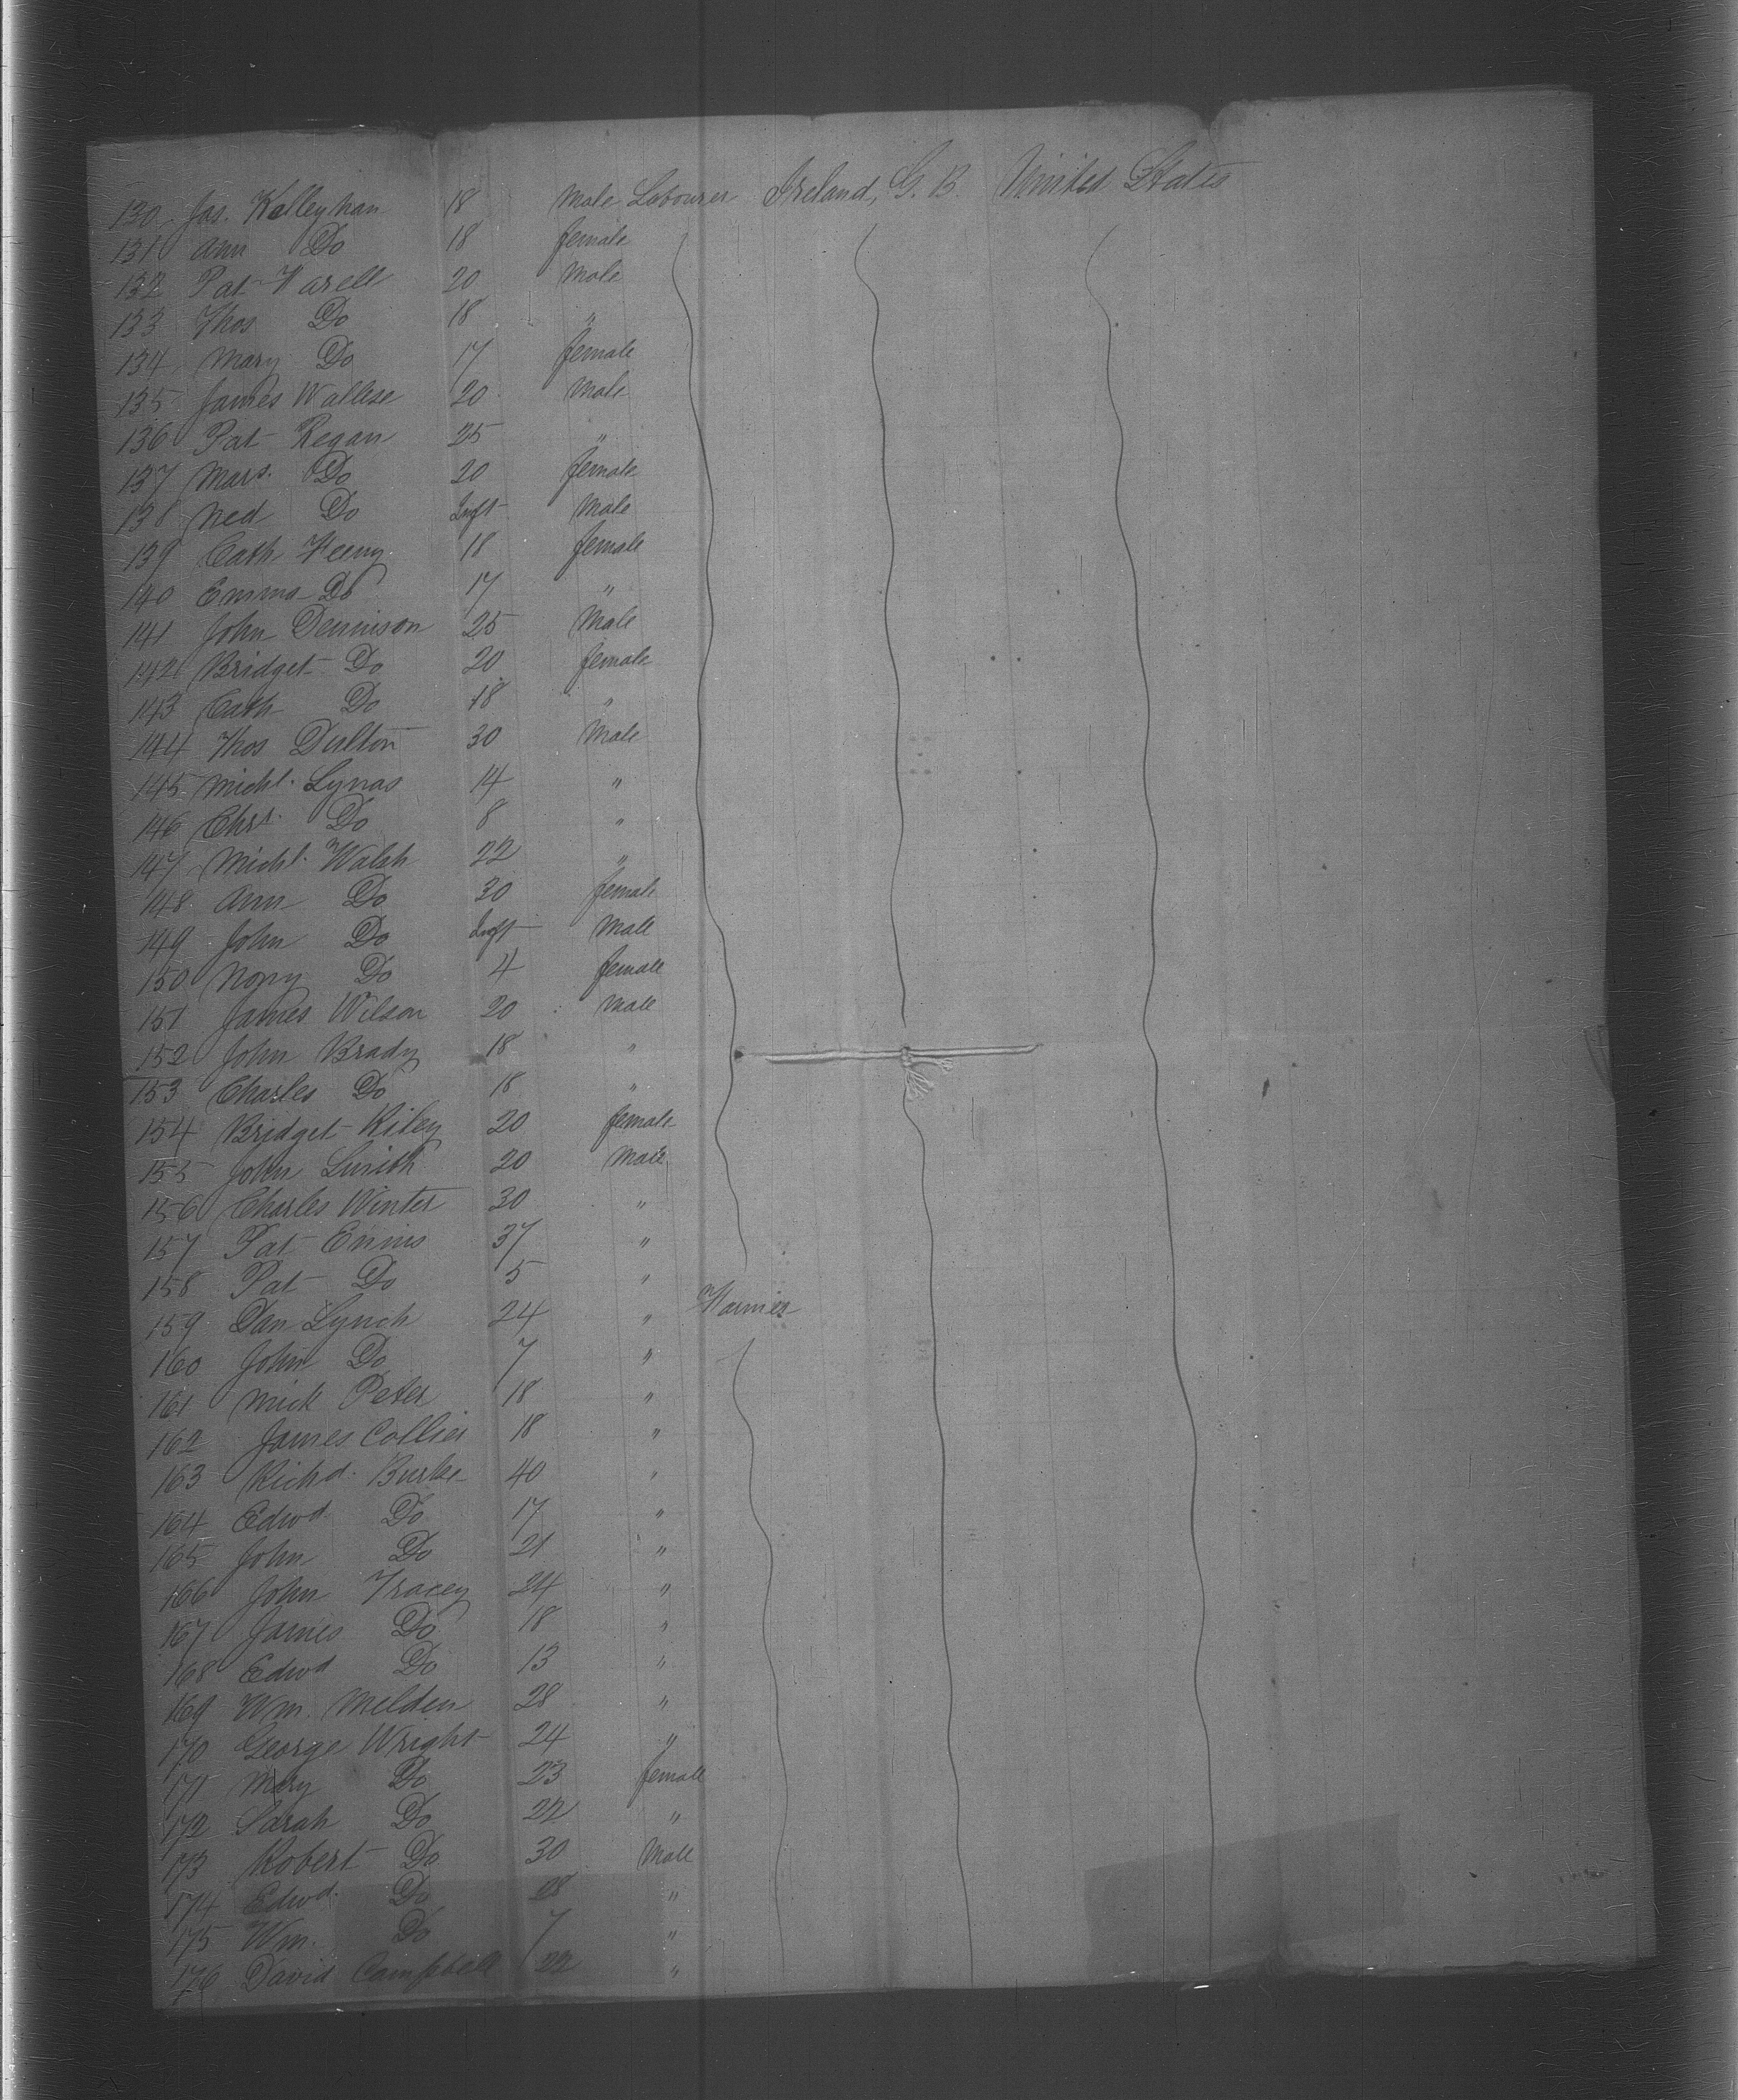 130 Jas. Kelleyhan 18 Male Labourer Ireland, G. B. United States
131 Ann Do 18 female
132 Pat Farell 20 Male
133 Thos Do 18 "
134 Mary Do 17 female
135 James Wallese 20 Male
136 Pat Regan 25 "
137 Mars. Do 20 female
138 Ned Do Inft Male
139 Cath Feeny 18 female
140 Emma Do 17 "
141 John Dennison 25 Male
142 Bridget Do 20 female
143 Cath Do 18 "
144 Thos Dulton 30 Male
145 Michl. Lynas 14 "
146 Chrs. Do 8 "
147 Michl. Walsh 22 "
148 Ann Do 30 female
149 John Do Inft Male
150 Nopy Do 4 female
151 James Wilson 20 Male
152 John Brady 18 "
153 Charles Do 18 "
154 Bridget Riley 20 female
155 John Smith 20 Male
156 Charles Winter 30 "
157 Pat Ennis 37 "
158 Pat Do 5 "
159 Dan Lynch 24 " Farmer
160 John Do 7 "
161 Mick Peter 18 "
162 James Collier 18 "
163 Richd. Burke 40 "
164 Edwd. Do 17 "
165 John Do 21 "
166 John Tracey 24 "
167 James Do 18 "
168 Edwd Do 13 "
169 Wm. Melden 28 "
170 George Wright 24 "
171 Mary Do 23 female
172 Sarah Do 22 "
173 Robert Do 30 Male
174 Edwd. Do 28 "
175 Wm. Do 7 "
176 David Campbell 22 "